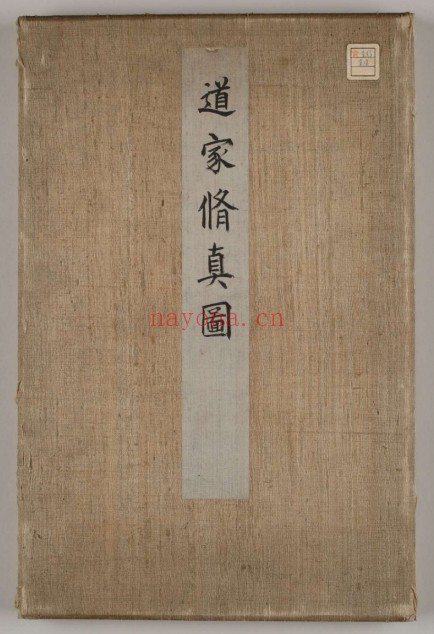 道家脩真圖
nayona.cn